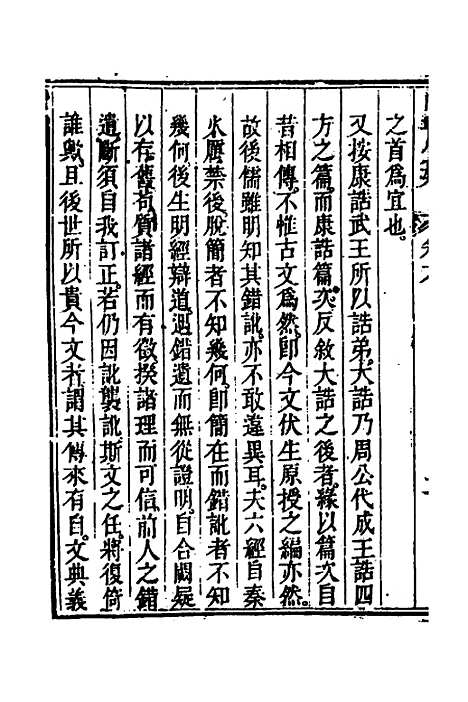 之首爲宜也。
又按康誥武王所以誥弟。大誥乃周公代成王誥四
方之篇。而康誥篇次。反敘大誥之後者。緣以篇次自
昔相傳。不惟古文爲然。卽今文伏生原授之編亦然。
故後儒雖明知其錯訛。亦不敢違異耳。夫六經自秦
火厲禁後。脫簡者不知幾何。卽簡在而錯訛者不知
幾何。後生明經辯道。遇錯遺而無從證明。自合闕疑
以存舊。苟質諸經而有徵。揆諸理而可信。前人之錯
遺。斷須自我訂正。若仍因訛襲訛。斯文之任。將復倚
誰歟。且後世所以貴今文者。謂其傳來有自。文典義